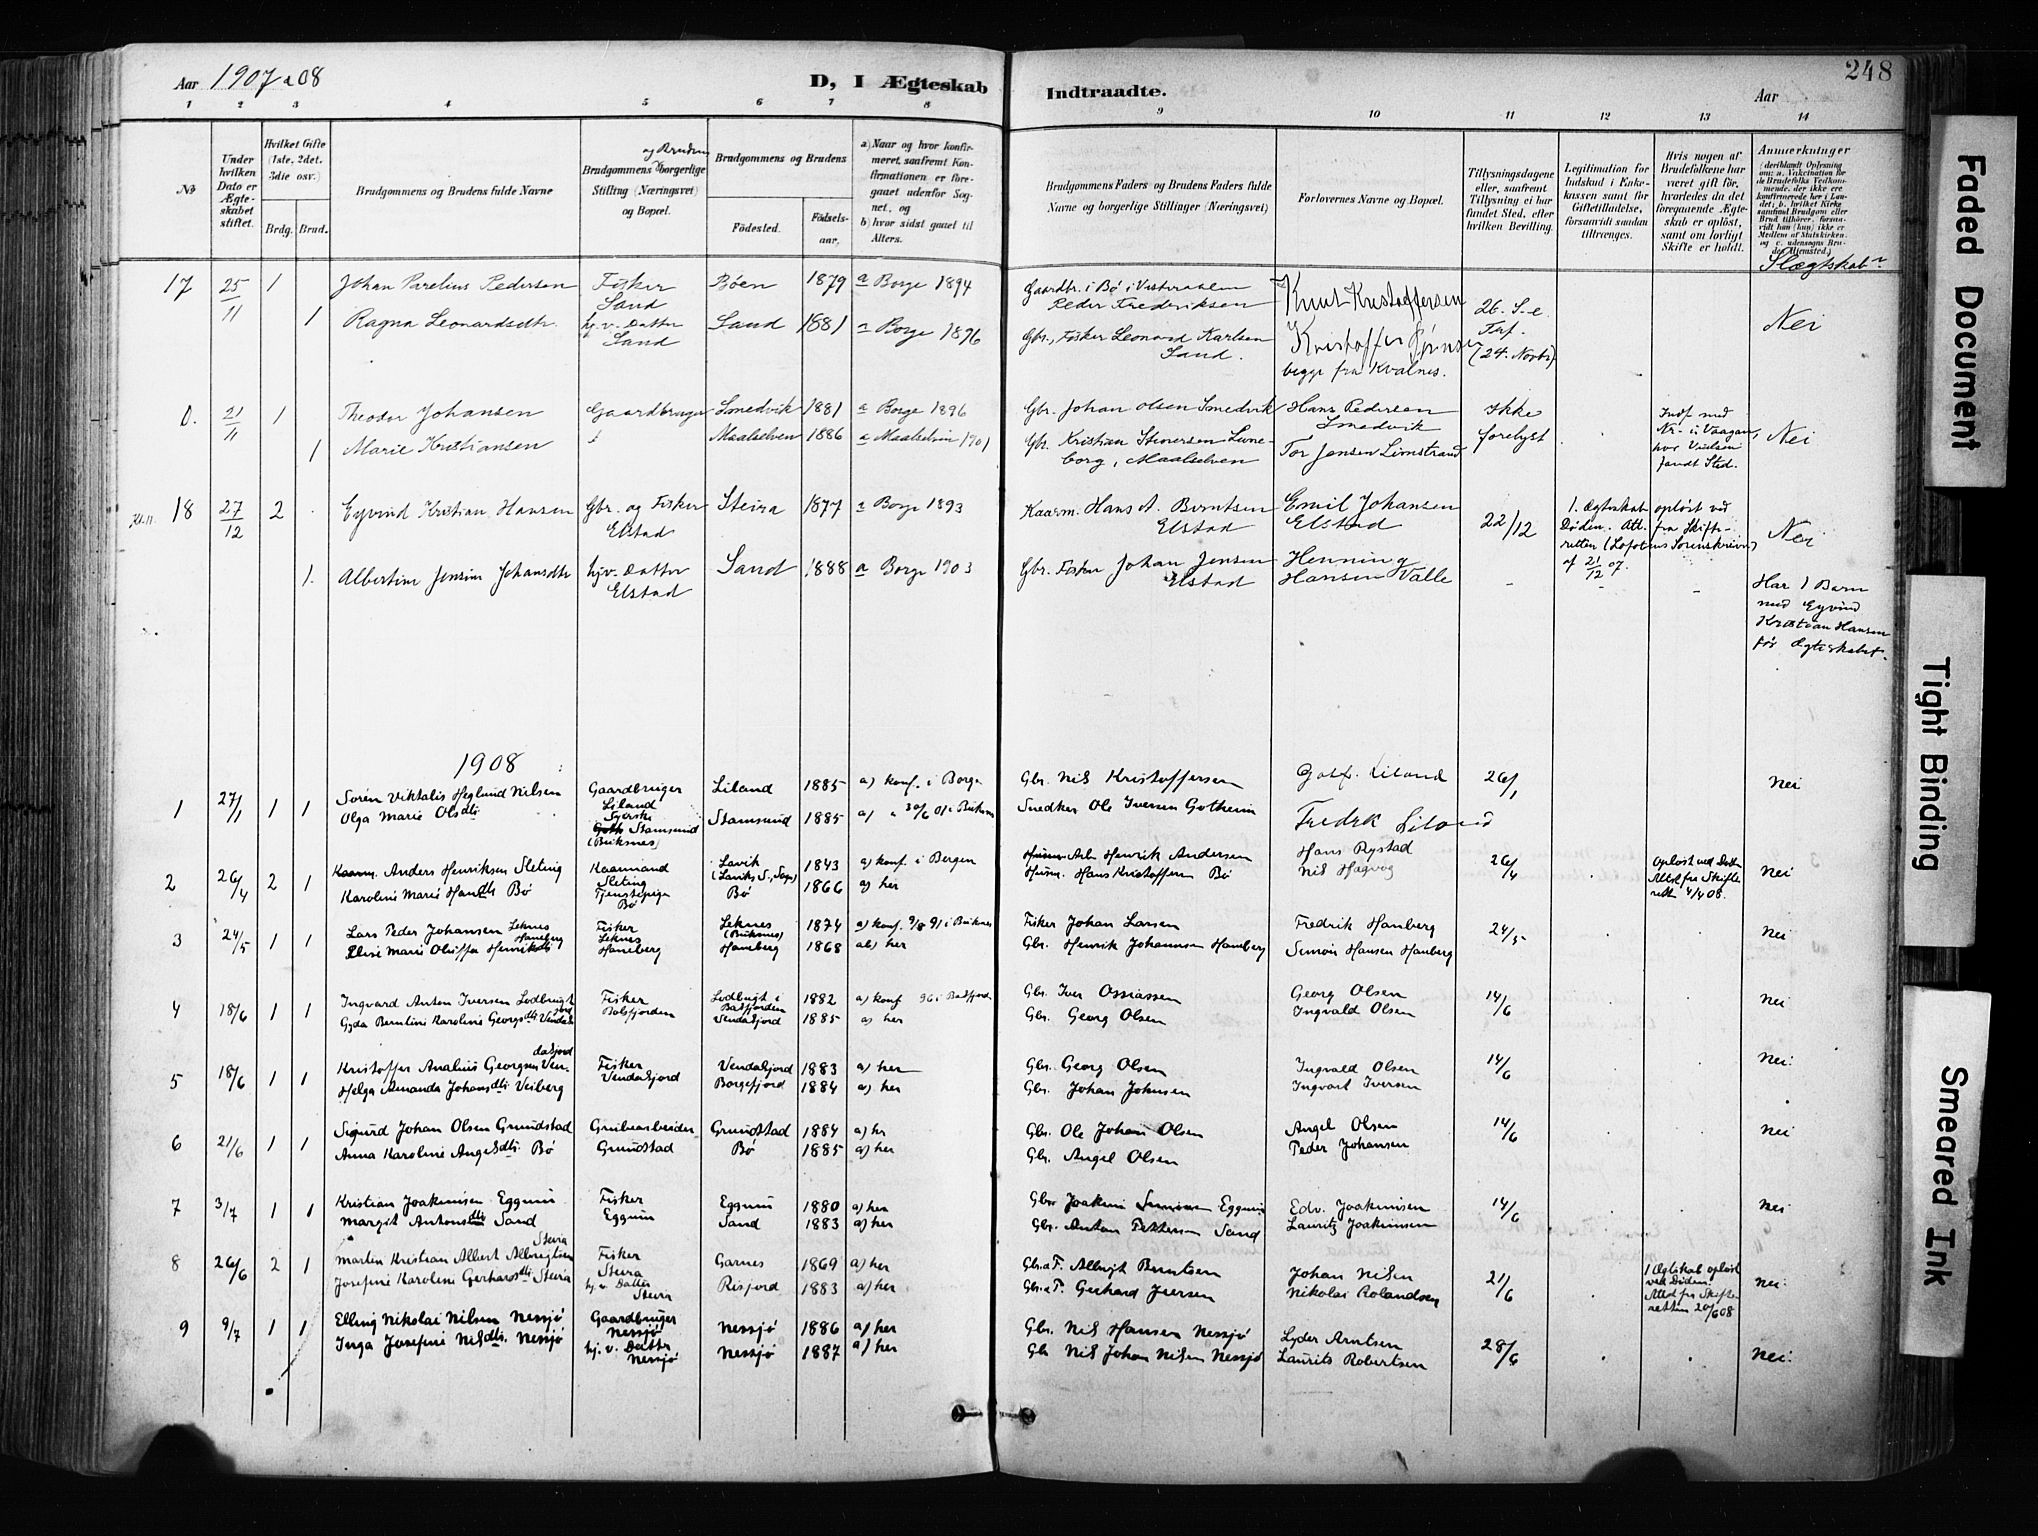 Aar 1907 & 08
D, I Ægteskab
Indtraadte.
248
Aar
1 2 3 4 5 6 7 8 9 10 11 12 13 14
No
Under hvilken Dato er Ægteskabet stiftet.
Hvilket Gifte (1ste, 2det, 3die osv.)
Brdg. Brud.
Brudgommens og Brudens fulde Navne
Brudgommens og Brudens borgerlige Stilling (Næringsvei) og Bopæl.
Brudgommens og Brudens
Fødested.
Fødselsaar.
a) Naar og hvor konfirmeret, saafremt Konfirmationen er foregaaet udenfor Sognet, og
b) hvor sidst gaaet til Alters.
Brudgommens Faders og Brudens Faders fulde Navne og borgerlige Stillinger (Næringsvei)
Forlovernes Navne og Bopæl.
Tillysningsdagene eller, saafremt Tillysning ei har fundet Sted, efter hvilken Bevilling.
Legitimation for Indskud i Enkekassen samt for Giftetilladelse, forsaavidt saadan tiltrænges.
Hvis nogen af Brudefolkene har været gift før, hvorledes da det foregaaende Ægteskab er opløst, samt om lovligt Skifte er holdt.
Anmerkninger
Slægtskab
17 25/11 1 Johan Parelius Pedersen Fisker Sand Bøen 1879 a Borge 1894 Gaardbr. i Bø i Vesteraalen Peder Frederiksen Knut Kristoffersen 26. S. e. Tref.
1 Ragna Leonardsdtr. hj. v. Datter Sand Sand 1881 a Borge 1896 Gbr., Fisker Leonard Karlsen Sand. Kristoffer begge fra Kvalnes. (24. Novbr) Nei
0. 21/11 1 Theodor Johansen Gaardbruger Smedvik 1881 a Borge 1896 Gbr. Johan Olsen Smedvik Hans Pedersen Smedvik ikke forelyst Indf med Nr - i Vaagan, hvor Vielsen fandt Sted. Nei
1 Marie Kristiansen Maalselven 1886 a Maalselven 1901 Gbr. Kristian Steinersen Luneborg, Maalselven Tor Jensen Limstrand
18 27/12 2 Eyvind Kristian Hansen Gbr. og Fisker Elstad Steira 1877 a Borge 1893 Kaarm. Hans A. Berntsen Elstad Emil Johansen Elstad 22/12 1. Ægteskab opløst ved Døden. Att. fra Skifteretten (Lofotens Sorenskriveri) af 21/12 07. Nei
1. Albertine Jensine Johansdtr hjv. Datter Elstad Sand 1888 a Borge 1903 Gbr. Fisker Johan Jensen Elstad Henning Hansen Valle - - - Har 1 Barn med Eyvind Kristian Hansen før Ægteskabet.
1908
1 27/1 1 1 Soren Viktalis Heglund Nilsen Gaardbruger Liland Liland 1885 a) konf. i Borge Gbr. Nils Kristoffersen Gotf. Liland 26/1 Nei
Olga Marie Olsdtr Syerske Stamsund (Buksnes) Stamsund 1885 a) " 30/6 01 i Buksnes Snedker Ole Iversen Gotheim Fredrik Liland
2 26/4 2 1 Kaarm. Anders Henriksen Sleting Kaarmand Sleting Lavik (Laviks S., Sogn) 1843 a) konf. i Bergen Arb Henrik Andersen Hans Rystad 26/4 Opløst ved Døden Attst fra Skifteretten 4/4 08. Nei
Karoline Marie Hansdtr Bø Tjenstepige Bø Bø 1866 a) her Husm. Hans Kristoffersen Bø Nils Hagvog
3 24/5 1 1 Lars Peder Johansen Leknes Fisker Leknes Leknes (Buksnes) 1874 a) konf. 9/8 91 i Buksnes Fisker Johan Larsen Fredrik Hanberg 24/5 Nei
Elise Marie Oluffa Henriksdtr Haneberg Haneberg Haneberg 1868 ab) her Gbr. Henrik Johannesen Hanberg Simon Hansen Hanberg
4 18/6 1 1 Ingvard Anton Iversen Lodbugt Fisker Balsfjorden Lodbugt i Balsfjorden 1882 a) konf 96 i Balsfjord Gbr. Iver Ossiassen Georg Olsen 14/6 Nei
Gyda Berntine Karoline Georgsdtr Vendalsjord Vendalsjord 1885 a) her Gbr. Georg Olsen Ingvald Olsen
5 18/6 1 1 Kristoffer Analius Georgsen Vendalsjord Fisker Vendalsjord Vendalsjord 1883 a) her Gbr. Georg Olsen Ingvald Olsen 14/6 Nei
Helga Amanda Johansdtr Veiberg Borgefjord 1884 a) her Gbr. Johan Johnsen Ingvart Iversen
6 21/6 1 1 Sigurd Johan Olsen Grundstad Grubearbeider Grundstad Grundstad 1884 a) hr Gbr. Ole Johan Olsen Angel Olsen 14/6 Nei
Anna Karoline Angelsdtr. Bø Bø 1885 a) her Gbr. Angel Olsen Peder Johansen
7 3/7 1 1 Kristian Joakimsen Eggum Fisker Eggum Eggum 1880 a) her Gbr Joakim Simonsen Eggum Edv. Joakimsen 14/6 Nei
Margit Antonsdtr Sand Sand 1883 a) her Gbr. Anton Pettersen Sand Lauritz Joakimsen
8 26/6 2 1 Martin Kristian Albert Albregtsen Steira Fisker Steira Garnes 1869 a) her Gbr. & F. Albregt Berntsen Johan Nilsen 21/6 1 Ægtskab opløst ved Døden. Attst fra Skifteretten 20/6 08 Nei
Josefine Karoline Gerhardsdtr Steira hj. v. Datter Steira Risfjord 1883 a) her Gbr. & F. Gerhard Iversen Nikolai Rolandsen
9 9/7 1 1 Elling Nikolai Nilsen Nessjø Gaardbruger Nessjø Nessjø 1886 a) her Gbr. Nils Hansen Nessjø Lyder Arntsen 28/6 Nei.
Inga Josefine Nilsdtr. Nessjø hj. v. Datter Nessjø Nessjø 1887 a) her Gbr Nils Johan Nilsen Nessjø Laurits Robertsen
Faded Document
Tight Binding
Smeared Ink